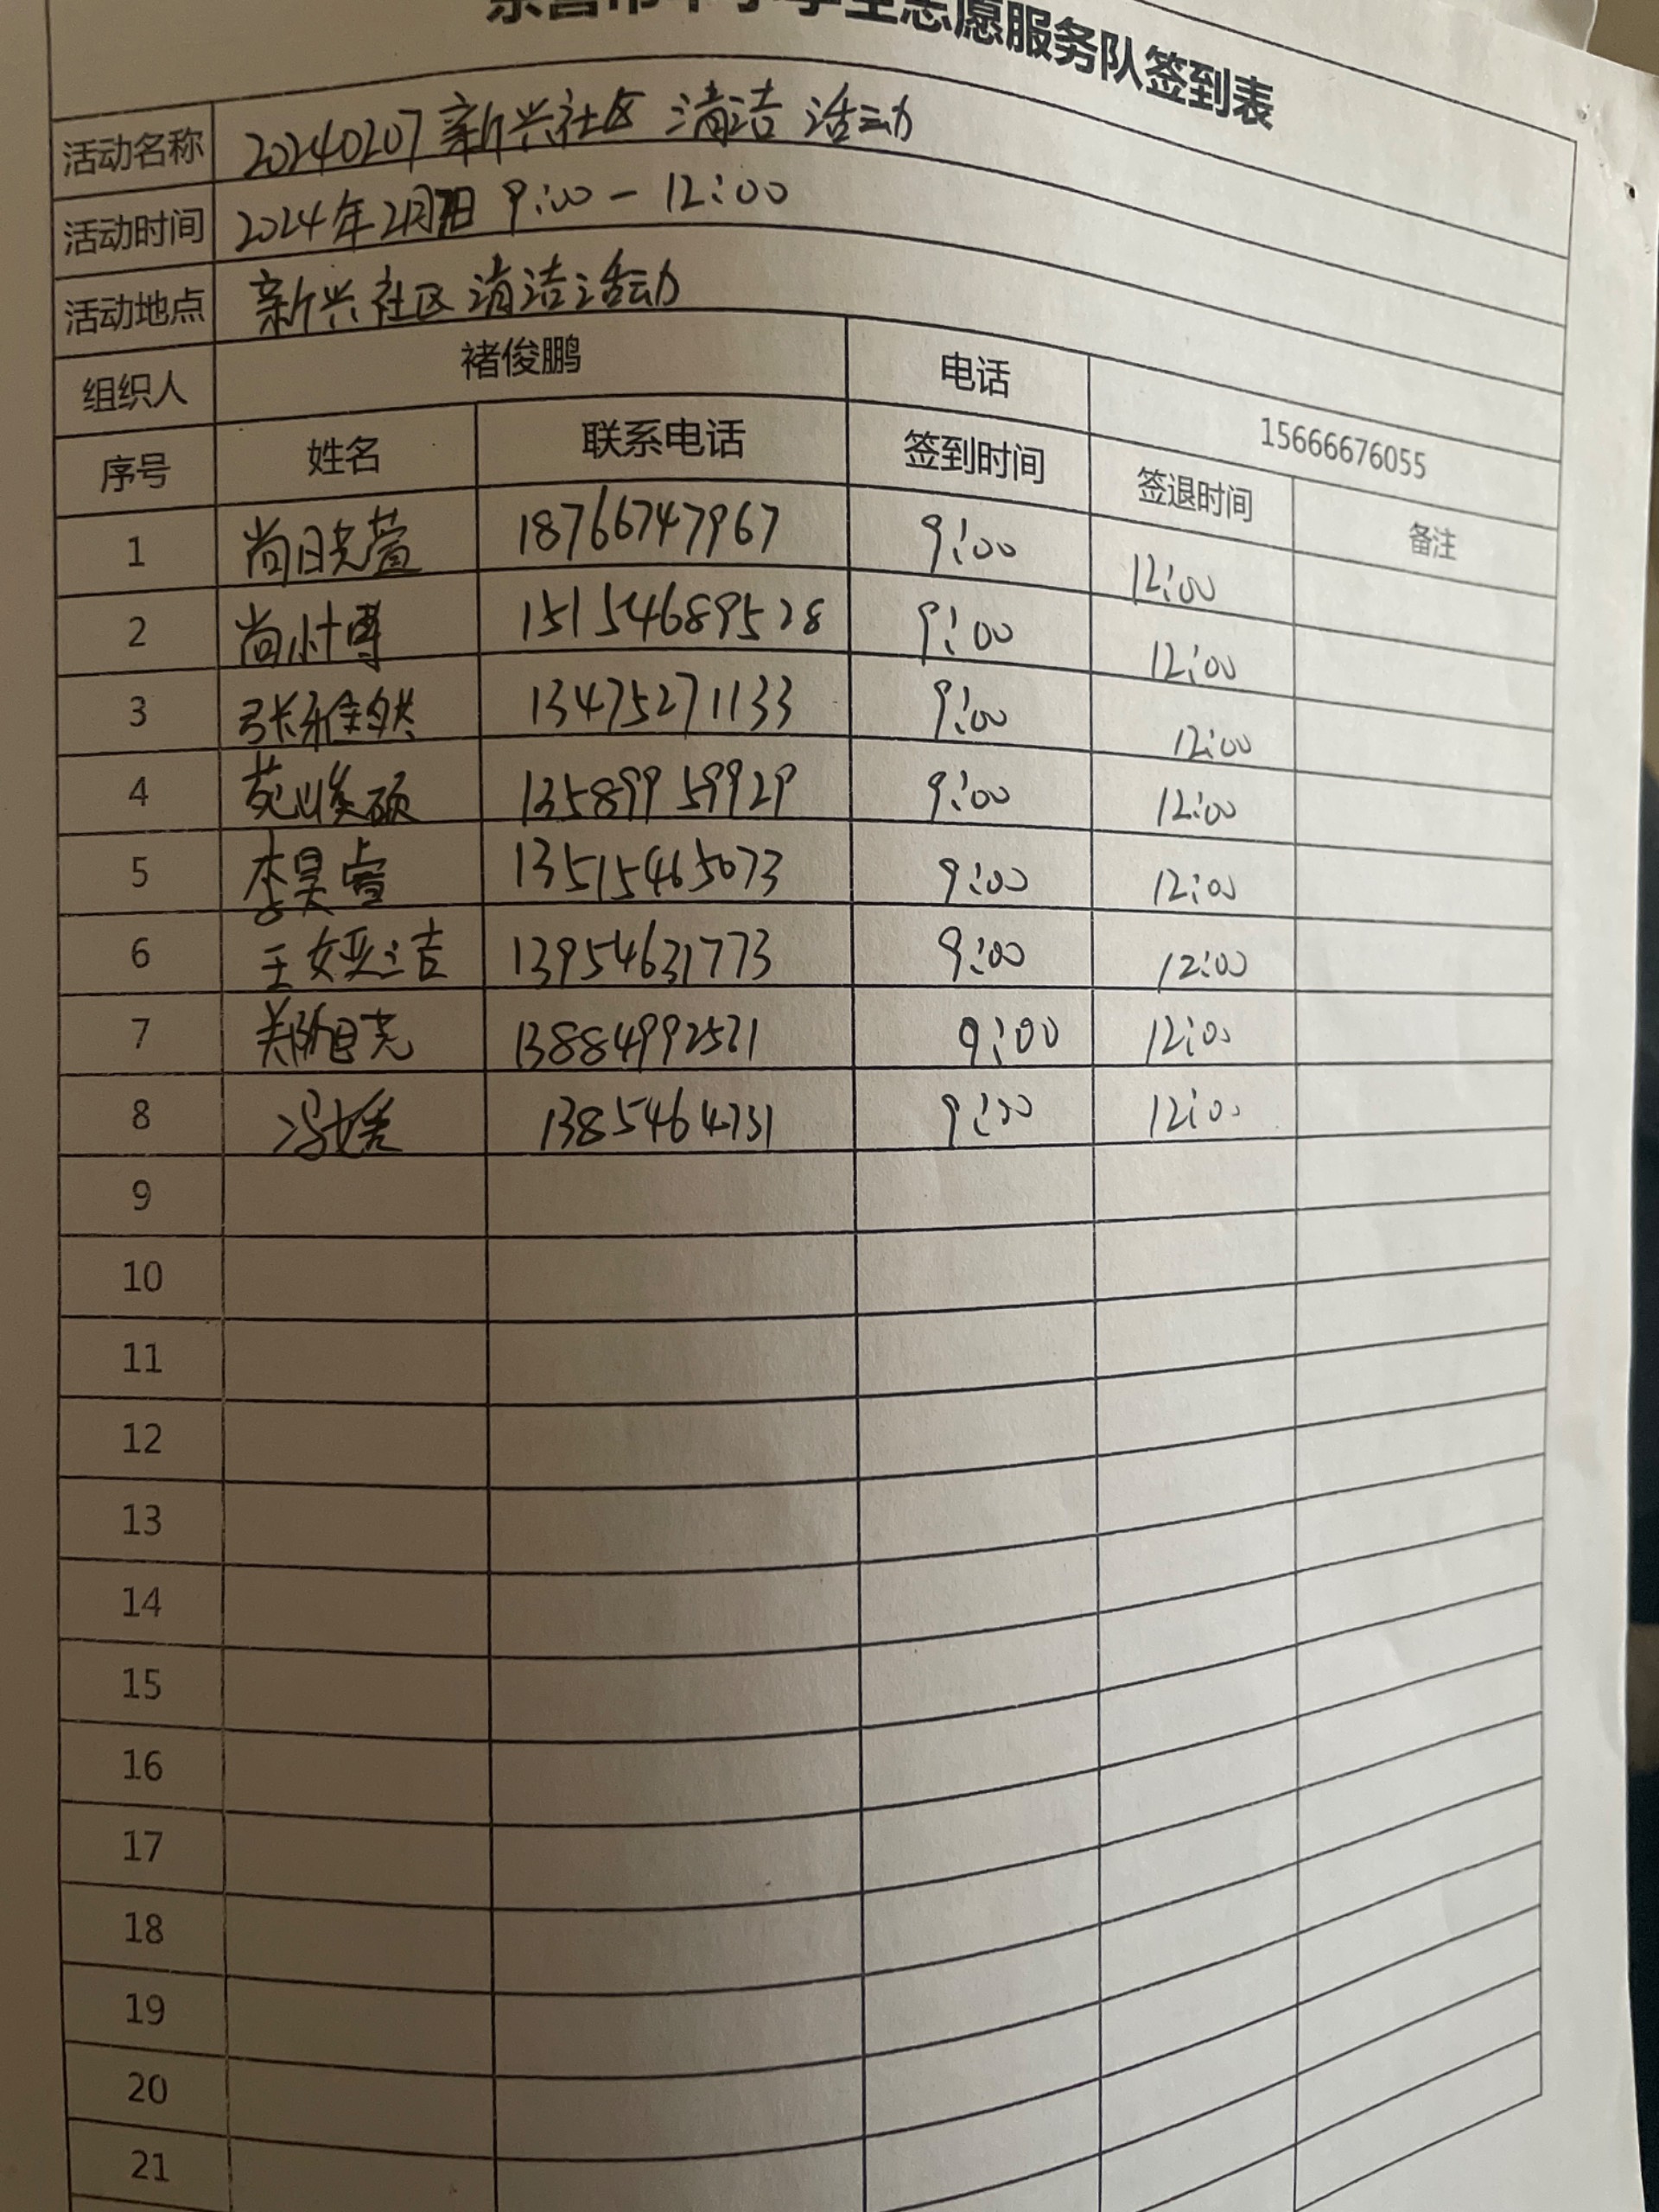 志愿服务队签到表
活动名称 20240207 新兴社区 清洁 活动
活动时间 2024年2月7日 9:00 - 12:00
活动地点 新兴社区清洁活动
组织人 褚俊鹏 电话 15666676055
序号 姓名 联系电话 签到时间 签退时间 备注
1 尚晓萱 18766747967 9:00 12:00
2 尚博 15154689528 9:00 12:00
3 张雅 13475271133 9:00 12:00
4 苑峻硕 13589959929 9:00 12:00
5 李昊睿 13515465073 9:00 12:00
6 王娅洁 13954631773 9:00 12:00
7 郑尧 13884992571 9:00 12:00
8 冯媛 1385464731 9:00 12:00
9
10
11
12
13
14
15
16
17
18
19
20
21